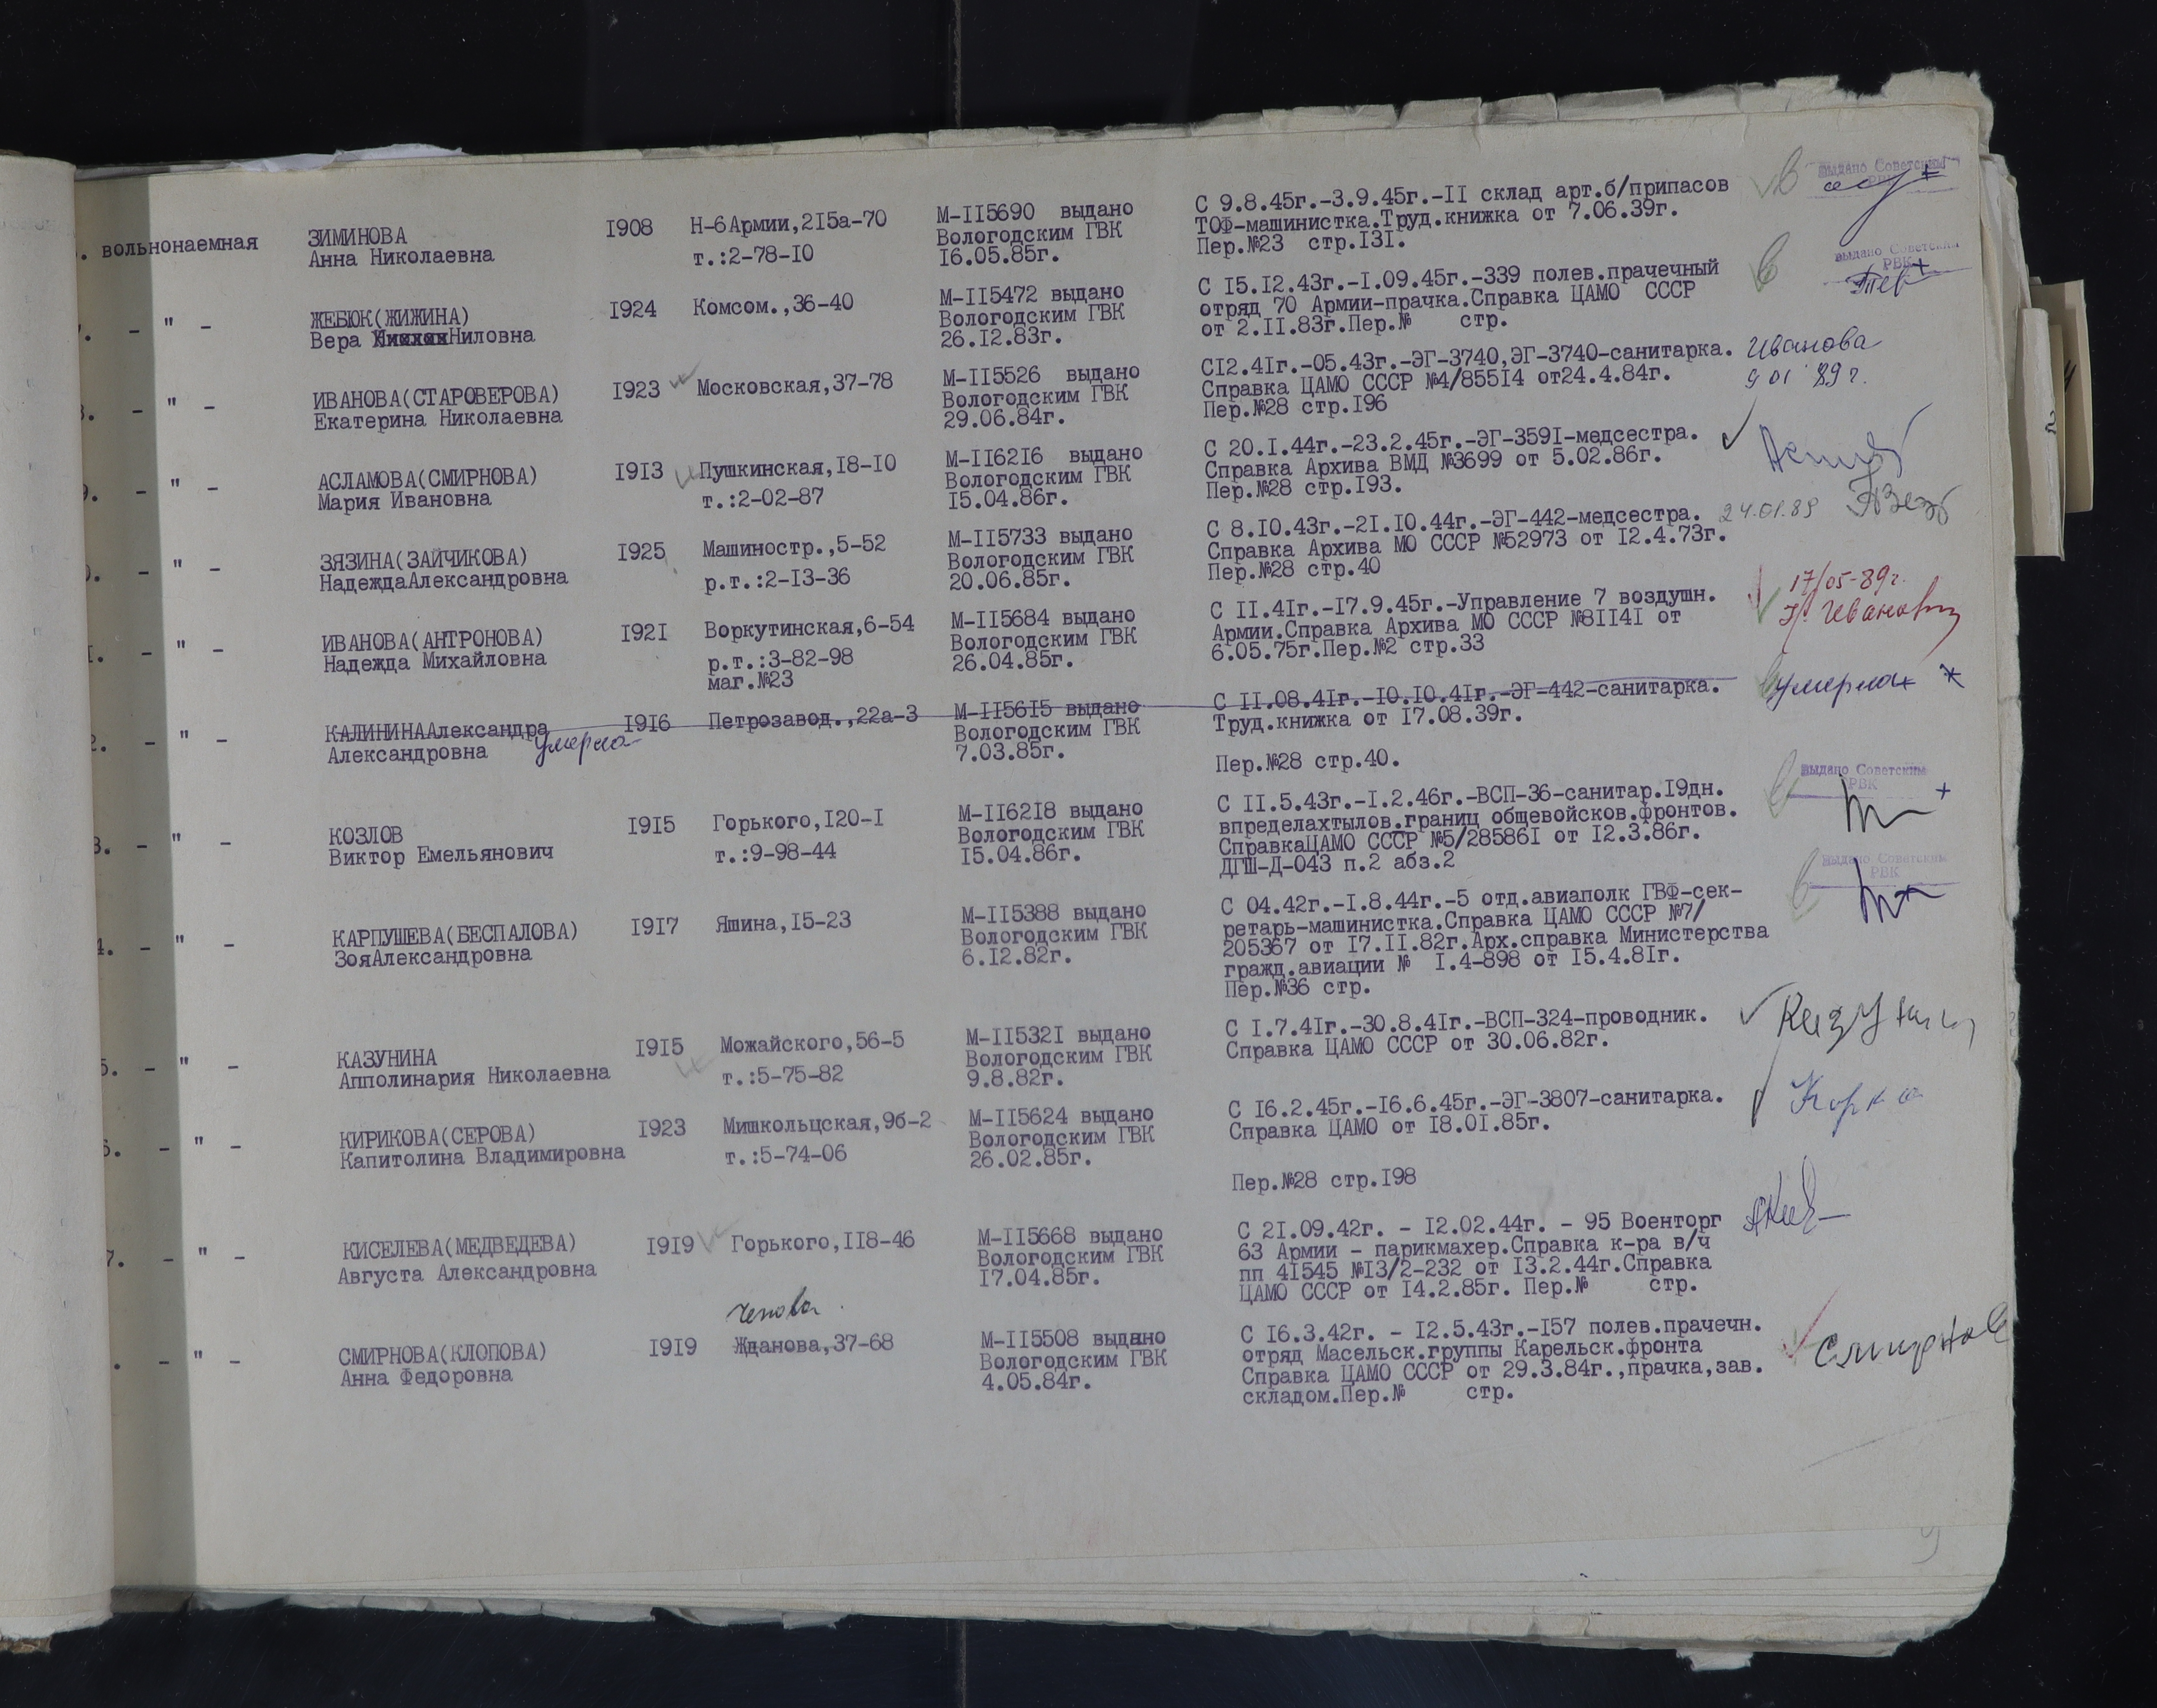 . вольнонаемная ЗИМИНОВА I908 Н-6Армии,2I5а-70 М-II5690 выдано С 9.8.45г.-3.9.45г.-II склад арт.б/припасов выдано Советским
Анна Николаевна т.:2-78-I0 Вологодским ГВК ТОФ-машинистка.Труд.книжка от 7.06.39г. РВК
I6.05.85г. Пер.№23 стр.I3I.
. - " - ЖЕБЮК(ЖИЖИНА) I924 Комсом.,36-40 М-II5472 выдано С I5.I2.43г.-I.09.45г.-339 полев.прачечный выдано Советским
Вера Ниловна Вологодским ГВК отряд 70 Армии-прачка.Справка ЦАМО СССР РВК
26.I2.83г. от 2.II.83г.Пер.№ стр.
. - " - ИВАНОВА(СТАРОВЕРОВА) I923 Московская,37-78 М-II5526 выдано СI2.4Iг.-05.43г.-ЭГ-3740,ЭГ-3740-санитарка. Иванова
Екатерина Николаевна Вологодским ГВК Справка ЦАМО СССР №4/855I4 от24.4.84г. 9 01 89г.
29.06.84г. Пер.№28 стр.I96
9. - " - АСЛАМОВА(СМИРНОВА) I9I3 Пушкинская,I8-I0 М-II62I6 выдано С 20.I.44г.-23.2.45г.-ЭГ-359I-медсестра.
Мария Ивановна т.:2-02-87 Вологодским ГВК Справка Архива ВМД №3699 от 5.02.86г.
I5.04.86г. Пер.№28 стр.I93.
. - " - ЗЯЗИНА(ЗАЙЧИКОВА) I925 Машиностр.,5-52 М-II5733 выдано С 8.I0.43г.-2I.I0.44г.-ЭГ-442-медсестра. 24.01.89
НадеждаАлександровна р.т.:2-I3-36 Вологодским ГВК Справка Архива МО СССР №52973 от I2.4.73г.
20.06.85г. Пер.№28 стр.40
. - " - ИВАНОВА(АНТРОНОВА) I92I Воркутинская,6-54 М-II5684 выдано С II.4Iг.-I7.9.45г.-Управление 7 воздушн. 17/05-89г.
Надежда Михайловна р.т.:3-82-98 Вологодским ГВК Армии.Справка Архива МО СССР №8II4I от
маг.№23 26.04.85г. 6.05.75г.Пер.№2 стр.33
2. - " - КАЛИНИНААлександра I9I6 Петрозавод.,22а-3 М-II56I5 выдано С II.08.4Iг.-I0.I0.4Iг.-ЭГ-442-санитарка. умерла
Александровна умерла Вологодским ГВК Труд.книжка от I7.08.39г.
7.03.85г. Пер.№28 стр.40.
3. - " - КОЗЛОВ I9I5 Горького,I20-I М-II62I8 выдано С II.5.43г.-I.2.46г.-ВСП-36-санитар.I9дн. выдано Советским
Виктор Емельянович т.:9-98-44 Вологодским ГВК впределахтылов.границ общевойсков.фронтов. РВК
I5.04.86г. СправкаЦАМО СССР №5/28586I от I2.3.86г.
ДГШ-Д-043 п.2 абз.2
4. - " - КАРПУШЕВА(БЕСПАЛОВА) I9I7 Яшина,I5-23 М-II5388 выдано С 04.42г.-I.8.44г.-5 отд.авиаполк ГВФ-сек- выдано Советским
ЗояАлександровна Вологодским ГВК ретарь-машинистка.Справка ЦАМО СССР №7/ РВК
6.I2.82г. 205367 от I7.II.82г.Арх.справка Министерства
гражд.авиации № I.4-898 от I5.4.8Iг.
Пер.№36 стр.
5. - " - КАЗУНИНА I9I5 Можайского,56-5 М-II532I выдано С I.7.4Iг.-30.8.4Iг.-ВСП-324-проводник.
Апполинария Николаевна т.:5-75-82 Вологодским ГВК Справка ЦАМО СССР от 30.06.82г.
9.8.82г.
6. - " - КИРИКОВА(СЕРОВА) I923 Мишкольцская,9б-2 М-II5624 выдано С I6.2.45г.-I6.6.45г.-ЭГ-3807-санитарка.
Капитолина Владимировна т.:5-74-06 Вологодским ГВК Справка ЦАМО от I8.0I.85г.
26.02.85г. Пер.№28 стр.I98
7. - " - КИСЕЛЕВА(МЕДВЕДЕВА) I9I9 Горького,II8-46 М-II5668 выдано С 2I.09.42г. - I2.02.44г. - 95 Военторг
Августа Александровна Вологодским ГВК 63 Армии - парикмахер.Справка к-ра в/ч
I7.04.85г. пп 4I545 №I3/2-232 от I3.2.44г.Справка
ЦАМО СССР от I4.2.85г. Пер.№ стр.
. - " - СМИРНОВА(КЛОПОВА) I9I9 Жданова,37-68 М-II5508 выдано С I6.3.42г. - I2.5.43г.-I57 полев.прачечн.
Анна Федоровна Вологодским ГВК отряд Масельск.группы Карельск.фронта
4.05.84г. Справка ЦАМО СССР от 29.3.84г.,прачка,зав.
складом.Пер.№ стр.